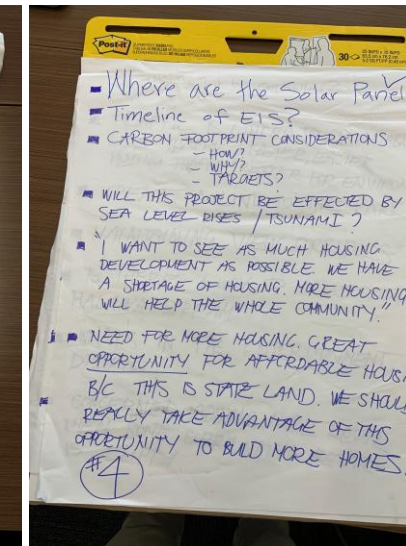 Post-it
30
- Where are the Solar Panel
- Timeline of EIS?
- CARBON FOOTPRINT CONSIDERATIONS
- HOW?
- WHY?
- TARGETS?
- WILL THIS PROJECT BE EFFECTED BY
SEA LEVEL RISES / TSUNAMI?
- I WANT TO SEE AS MUCH HOUSING
DEVELOPMENT AS POSSIBLE. WE HAVE
A SHORTAGE OF HOUSING. MORE HOUSING
WILL HELP THE WHOLE COMMUNITY."
- NEED FOR MORE HOUSING. GREAT
OPPORTUNITY FOR AFFORDABLE HOUSI
B/C THIS IS STATE LAND. WE SHOUL
REALLY TAKE ADVANTAGE OF THIS
OPPORTUNITY TO BUILD MORE HOMES.
#4